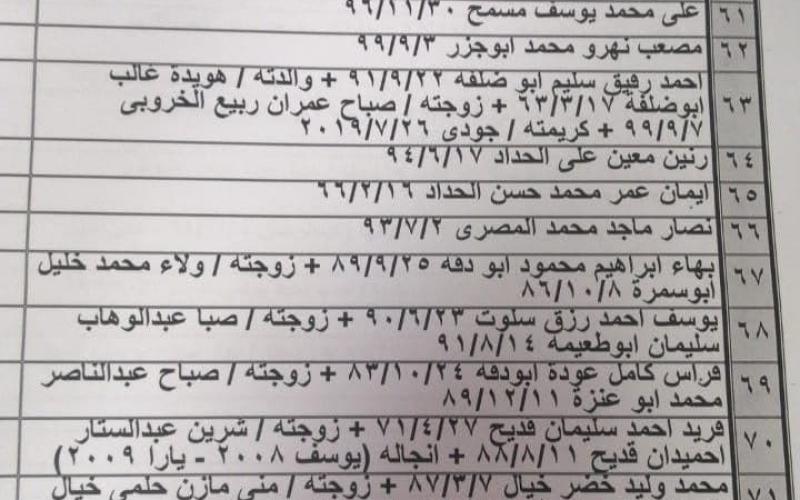 ٦١ على محمد يوسف مسمح ٩٦/١١/٣٠
٦٢ مصعب نهرو محمد ابوجزر ٩٩/٩/٣
٦٣ احمد رفيق سليم ابو ضلفه ٩١/٩/٢٢ + والدته / هويدة غالب
ابوضلفة ٦٣/٣/١٧ + زوجته / صباح عمران ربيع الخروبى
٩٩/٩/٧ + كريمته / جودى ٢٠١٩/٧/٢٦
٦٤ رنين معين على الحداد ٩٤/٦/١٧
٦٥ ايمان عمر محمد حسن الحداد ٦٦/٢/١٦
٦٦ نصار ماجد محمد المصرى ٩٣/٧/٢
٦٧ بهاء ابراهيم محمود ابو دقه ٨٩/٩/٢٥ + زوجته / ولاء محمد خليل
ابوسمرة ٨٦/١٠/٨
٦٨ يوسف احمد رزق سلوت ٩٠/٦/٢٣ + زوجته / صبا عبدالوهاب
سليمان ابوطعيمه ٩١/٨/١٤
٦٩ فراس كامل عودة ابودقه ٨٣/١٠/٢٤ + زوجته / صباح عبدالناصر
محمد ابو عنزة ٨٩/١٢/١١
٧٠ فريد احمد سليمان قديح ٧١/٤/٢٧ + زوجته / شرين عبدالستار
احميدان قديح ٨٨/٨/١١ + انجاله (يوسف ٢٠٠٨ - يارا ٢٠٠٩)
٧١ محمد وليد خضر خيال ٨٧/٣/٧ + زوجته / منى مازن حلمى خيال